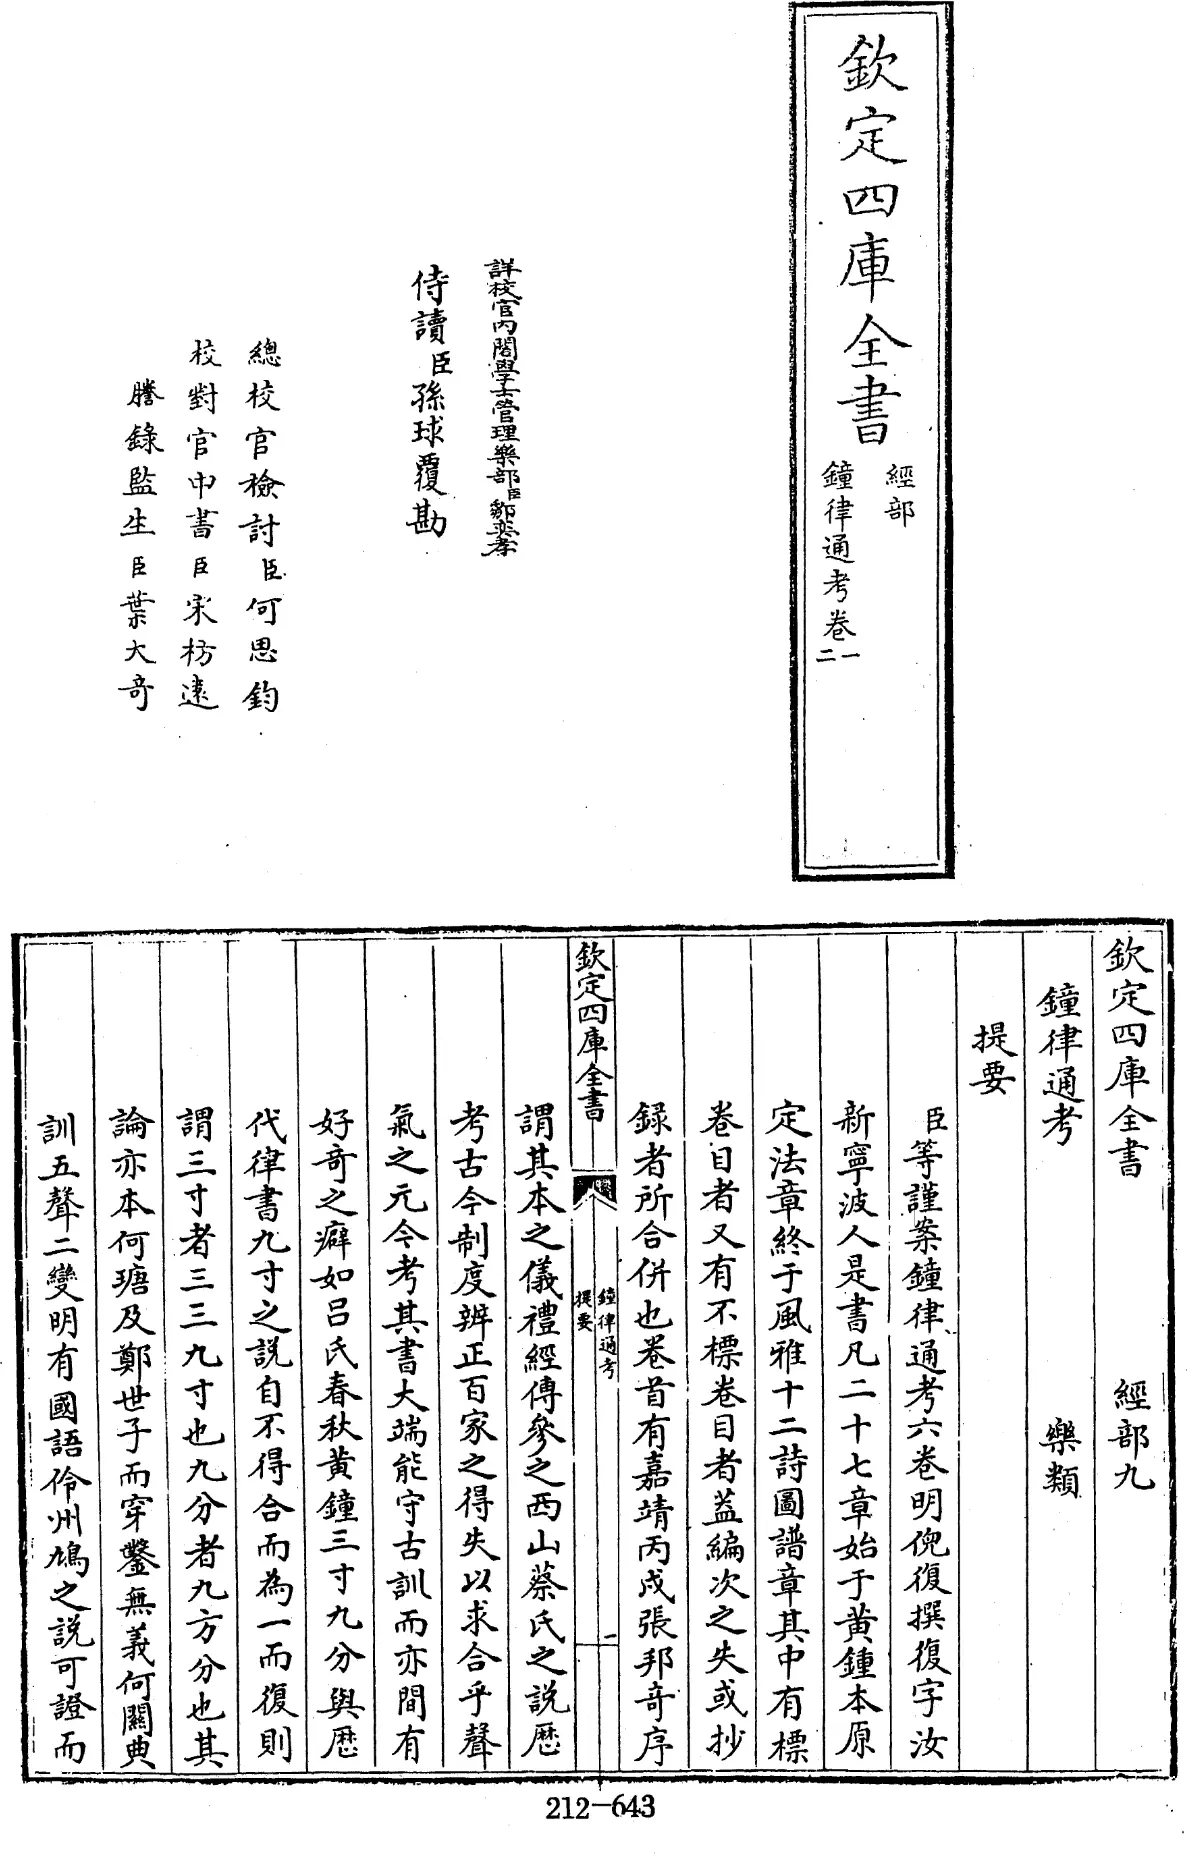 欽定四庫全書
經部
鐘律通考卷一二
詳校官内閣學士管理樂部臣鄒奕孝
侍讀臣孫球覆勘
總校官檢討臣何思鈞
校對官中書臣宋枋遠
謄錄監生臣葉大奇
欽定四庫全書 經部九
鐘律通考 樂類
提要
臣等謹案鐘律通考六卷明倪復撰復字汝
新寧波人是書凡二十七章始于黄鍾本原
定法章終于風雅十二詩圖譜章其中有標
卷目者又有不標卷目者葢編次之失或抄
録者所合併也卷首有嘉靖丙戌張邦竒序
欽定四庫全書
鐘律通考
提要
一
謂其本之儀禮經傳參之西山蔡氏之說歷
考古今制度辨正百家之得失以求合乎聲
氣之元今考其書大端能守古訓而亦間有
好竒之癖如吕氏春秋黄鐘三寸九分與歷
代律書九寸之說自不得合而為一而復則
謂三寸者三三九寸也九分者九方分也其
論亦本何瑭及鄭世子而穿鑿無義何關典
訓五聲二變明有國語伶州鳩之說可證而
212-643